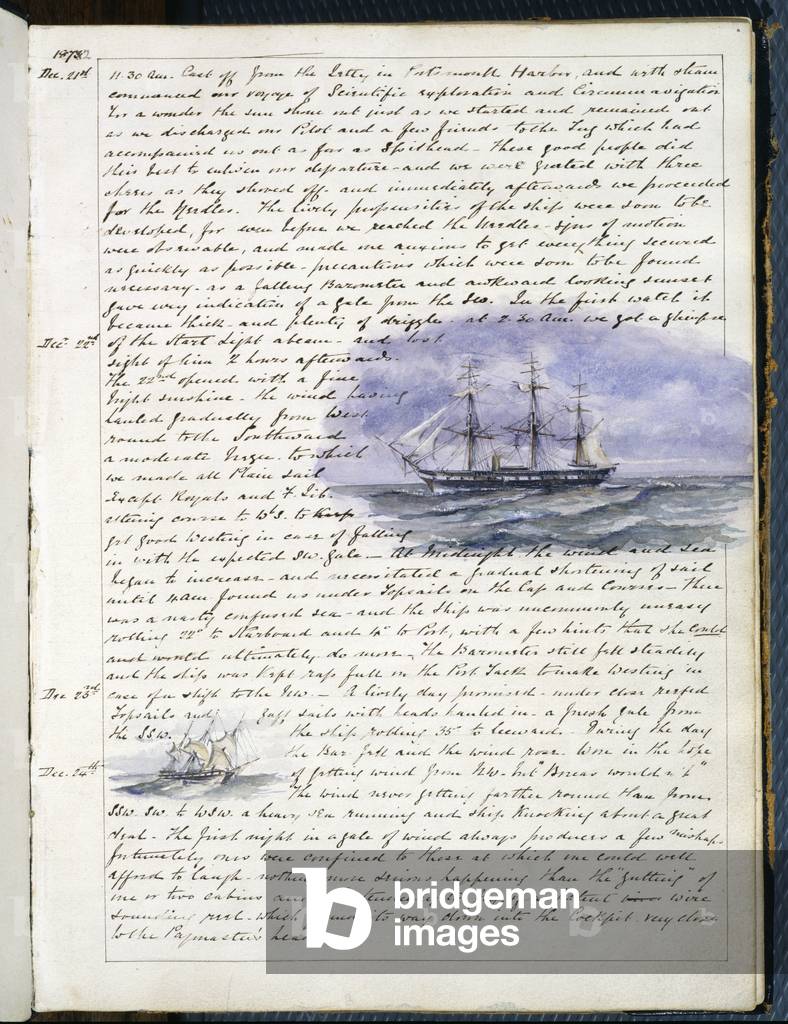 1872
Dec. 21st
11.30 Am. Cast off from the Jetty in Portsmouth Harbor, and with steam
commenced our voyage of Scientific exploration and Circumnavigation
For a wonder the sun shone out just as we started and remained out
as we discharged our Pilot and a few friends to the Tug which had
accompanied us out as far as Spithead - These good people did
their best to enliven our departure - and we were greeted with three
cheers as they shoved off - and immediately afterwards we proceeded
for the Needles. The lively propensities of the ship were soon to be
developed, for even before we reached the Needles - signs of motion
were observable, and made me anxious to get everything secured
as quickly as possible - precautions which were soon to be found
necessary - as a falling Barometer and awkward looking sunset
gave every indication of a gale from the SW. In the first watch it
became thick - and plenty of drizzle - at 2.30 Am. we got a glimpse
Decr. 22nd
of the Start Light abeam - and lost
sight of him 2 hours afterwards.
The 22nd opened with a fine
bright sunshine - the wind having
hauled gradually from West
round to the Southward
a moderate breeze - to which
we made all Plain Sail
Except Royals and F. Jib.
altering course to WbS. to Keep
get good Westing in case of falling
in with the expected SW. gale - At Midnight the wind and sea
began to increase - and necessitated a gradual shortening of sail
until 4am found us under Topsails on the Cap and Courses - There
was a nasty confused sea - and the Ship was uncommonly uneasy
rolling 22° to Starboard and to Port, with a few hints that she could
and would ultimately do more - The Barometer still fell steadily
and the ship was Kept rap full on the Port Tack to make Westing in
Dec 23rd
case of a shift to the NW. - A lively day promised - under close reefed
Topsails and gaff sails with heads hauled in - a fresh gale from
the SSW. the ship rolling 35° to leeward - During the day
the Bar. fell and the wind rose. Wore in the hope
Dec. 24th
of getting wind from NW. but "Boreas wouldn't"
The wind never getting farther round than from
SSW. SW. to WSW. a heavy sea running and ship Knocking about a great
deal - The first night in a gale of wind always produces a few mishaps
fortunately ours were confined to those at which one could well
afford to laugh - nothing more serious happening than the "gutting" of
one or two cabins and wire
sounding reel - which its way down into the Cockpit very close
to the Paymaster's head
bridgeman
images